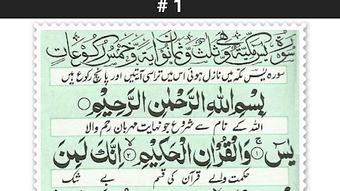 # 1
سورۃ یس مکیۃ وھی ثلث وثمانون ایۃ وخمس رکوعات
سورہ یس مکہ میں نازل ہوئی اس میں تراسی آیتیں اور پانچ رکوع ہیں
بِسْمِ اللهِ الرَّحْمٰنِ الرَّحِيْمِ
اللہ کے نام سے شروع جو نہایت مہربان رحم والا
يٰسٓ ۚ﴿۱﴾ وَالْقُرْاٰنِ الْحَكِيْمِ ۙ﴿۲﴾ اِنَّكَ لَمِنَ
حکمت والے قرآن کی قسم بے شک